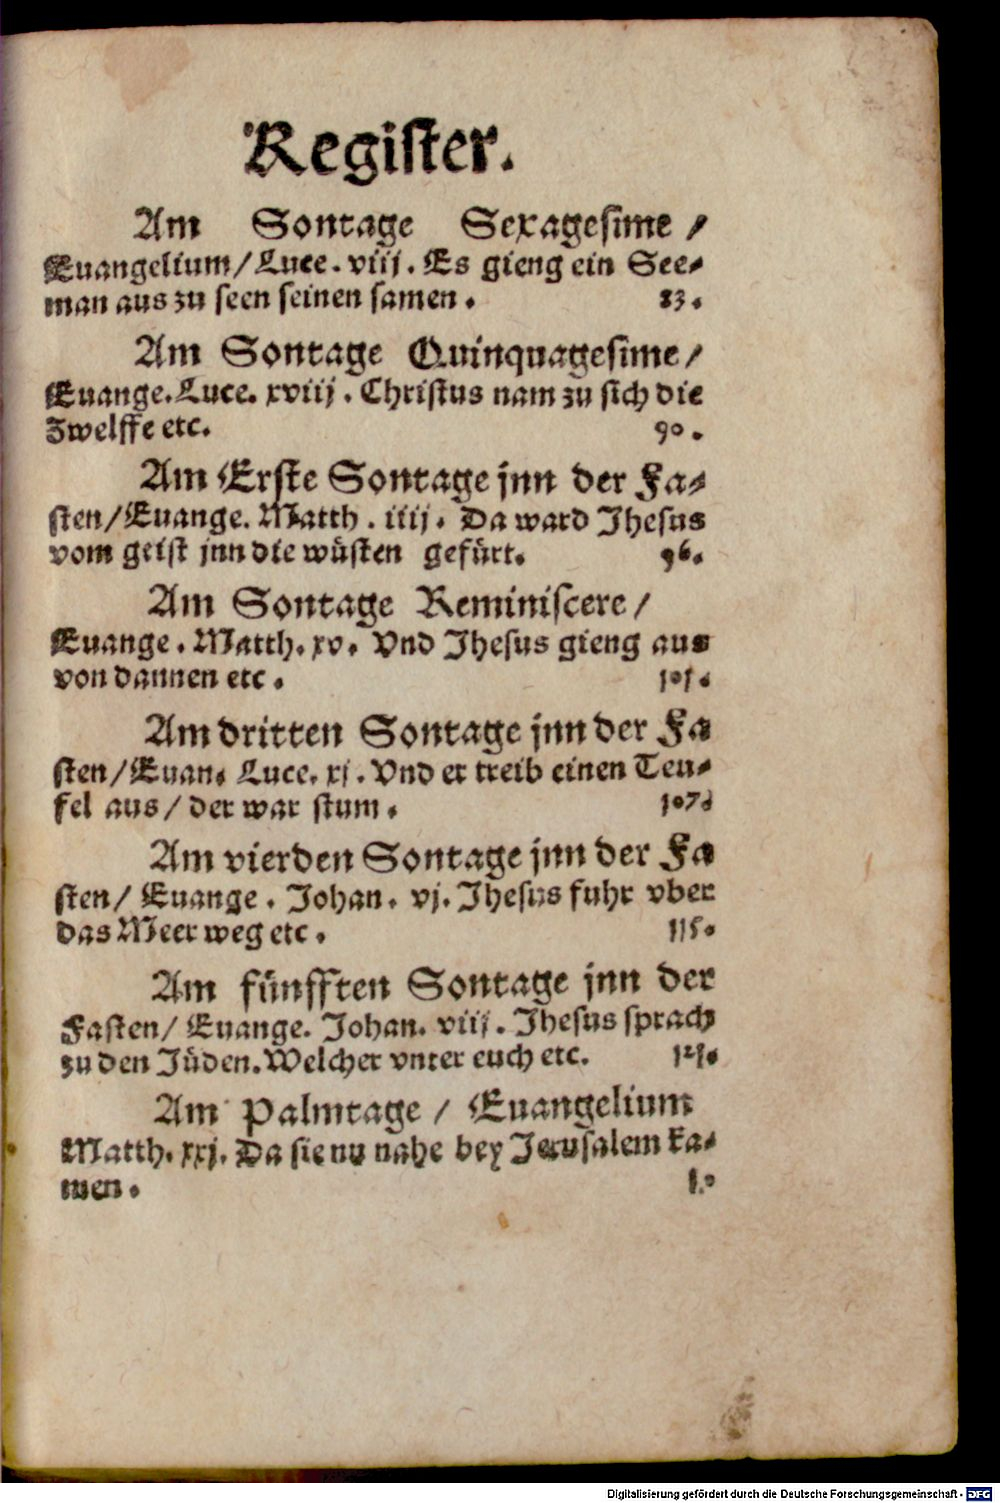 Register.
Am Sontage Sexagesime /
Euangelium/Luce. viij. Es gieng ein See⸗
man aus zu seen seinen samen. 83.
Am Sontage Quinquagesime/
Euange. Luce. xviij. Christus nam zu sich die
Zwelffe etc. 90.
Am Erste Sontage jnn der Fa⸗
sten/Euange. Matth. iiij. Da ward Jhesus
vom geist jnn die wüsten gefürt. 96.
Am Sontage Reminiscere /
Euange. Matth. xv. Vnd Jhesus gieng aus
von dannen etc. 101.
Am dritten Sontage jnn der Fa
sten/Euan. Luce. xj. Vnd er treib einen Teu⸗
fel aus/ der war stum. 107.
Am vierden Sontage jnn der Fa
sten/ Euange. Johan. vj. Jhesus fuhr vber
das Meer weg etc. 115.
Am fünfften Sontage jnn der
Fasten/ Euange. Johan. viij. Jhesus sprach
zu den Jüden. Welcher vnter euch etc. 121.
Am Palmtage / Euangelium
Matth. xxj. Da sie nu nahe bey Jerusalem ka⸗
men. 1.
Digitalisierung gefördert durch die Deutsche Forschungsgemeinschaft - DFG